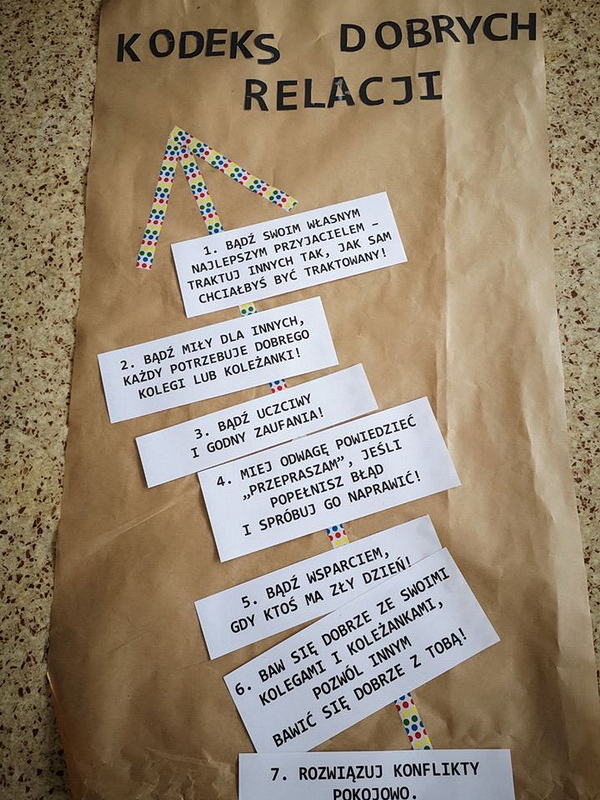 KODEKS DOBRYCH
RELACJI
1. BĄDŹ SWOIM WŁASNYM
NAJLEPSZYM PRZYJACIELEM –
TRAKTUJ INNYCH TAK, JAK SAM
CHCIAŁBYŚ BYĆ TRAKTOWANY!
2. BĄDŹ MIŁY DLA INNYCH,
KAŻDY POTRZEBUJE DOBREGO
KOLEGI LUB KOLEŻANKI!
3. BĄDŹ UCZCIWY
I GODNY ZAUFANIA!
4. MIEJ ODWAGĘ POWIEDZIEĆ
„PRZEPRASZAM”, JEŚLI
POPEŁNISZ BŁĄD
I SPRÓBUJ GO NAPRAWIĆ!
5. BĄDŹ WSPARCIEM,
GDY KTOŚ MA ZŁY DZIEŃ!
6. BAW SIĘ DOBRZE ZE SWOIMI
KOLEGAMI I KOLEŻANKAMI,
POZWÓL INNYM
BAWIĆ SIĘ DOBRZE Z TOBĄ!
7. ROZWIĄZUJ KONFLIKTY
POKOJOWO.